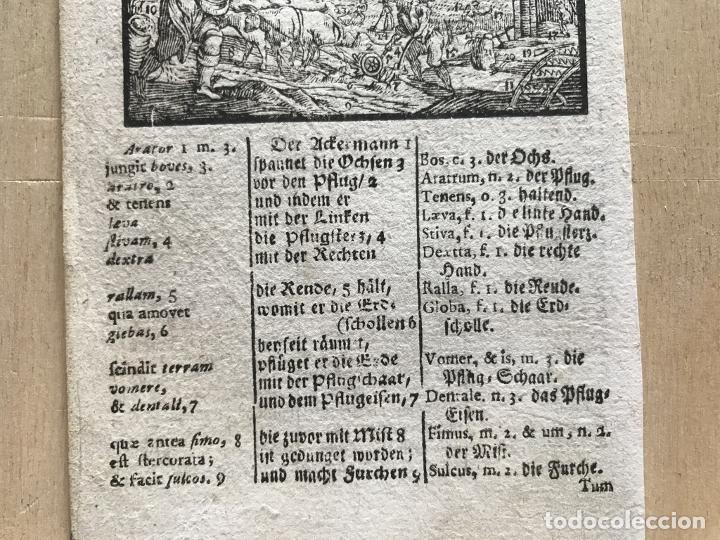 Arator 1 m. 3.
jungit boves, 3.
aratro, 2
& tenens
læva
stivam, 4
dextra
rallam, 5
qua amovet
glebas, 6
scindit terram
vomere,
& dentali, 7
quæ antea fimo, 8
est stercorata;
& facit sulcos. 9
Der Ackermann 1
spannet die Ochsen 3
vor den Pflug/ 2
und indem er
mit der Linken
die Pflugsterz, 4
mit der Rechten
die Reude, 5 hält,
womit er die Erd-
(schollen 6
beyseit räumet,
pflüget er die Erde
mit der Pflugschaar,
und dem Pflugeisen, 7
die zuvor mit Mist 8
ist gedunget worden;
und macht Furchen 9
Bos. c. 3. der Ochs.
Aratrum, n. 2. der Pflug.
Tenens, o. 3. haltend.
Læva, f. 1. die linke Hand.
Stiva, f. 1. die Pflugsterz.
Dextta, f. 1. die rechte
Hand.
Ralla, f. 1. die Reude.
Globa, f. 1. die Erd-
scholle.
Vomer, & is, m. 3. die
Pflug-Schaar.
Dentale. n. 3. das Pflug-
Eisen.
Fimus, m. 2. & um, n. 2.
der Mist.
Sulcus, m. 2. die Furche.
Tum
todocoleccion